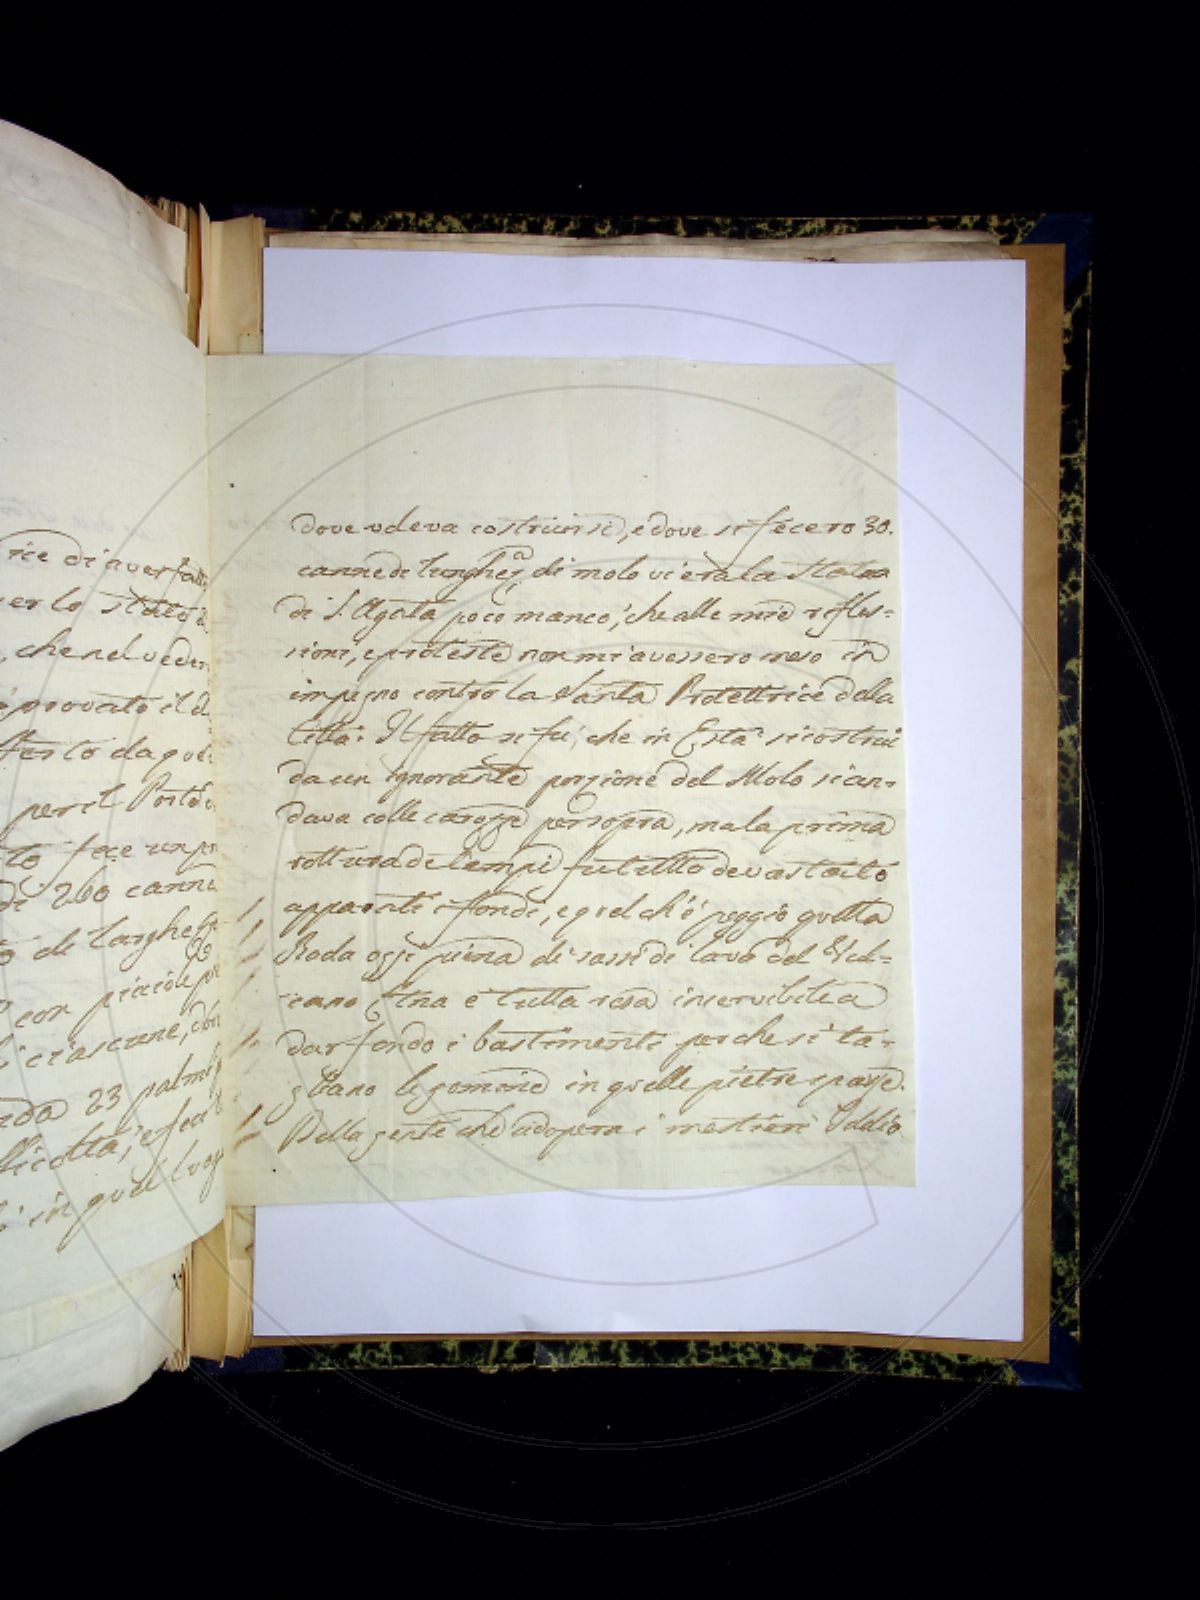 rice di aver fatto
per lo stato d
, che nel veder
approvato il d
festo da que
per il Porto d
to fece un pr
di 260 canne
di larghez
con picciole
di ciascune, don
23 palmi
in quel luog
dove voleva costruirsi, e dove si fecero 30.
canne di lunghez.a di molo vi era la Statua
di S. Agata poco mancò, che alle mie rifles=
sioni, e proteste non mi avessero meso in
impegno contro la Santa Protettrice della
Città: Il fatto si fu, che in Està si costrui
da un ignorante porzione del Molo si an=
dava colle carozze per sopra, ma la prima
rottura de tempi fu tutto devastato
apparati e fondi, e quel ch'è peggio quella
Rada oggi piena di sassi di lava del Vul=
cano Etna è tutta resa inservibile a
dar fondo i bastimenti perche si ta=
gliano le gomine in quelle pietre sparse.
Della gente che adopera i mestieri Iddio